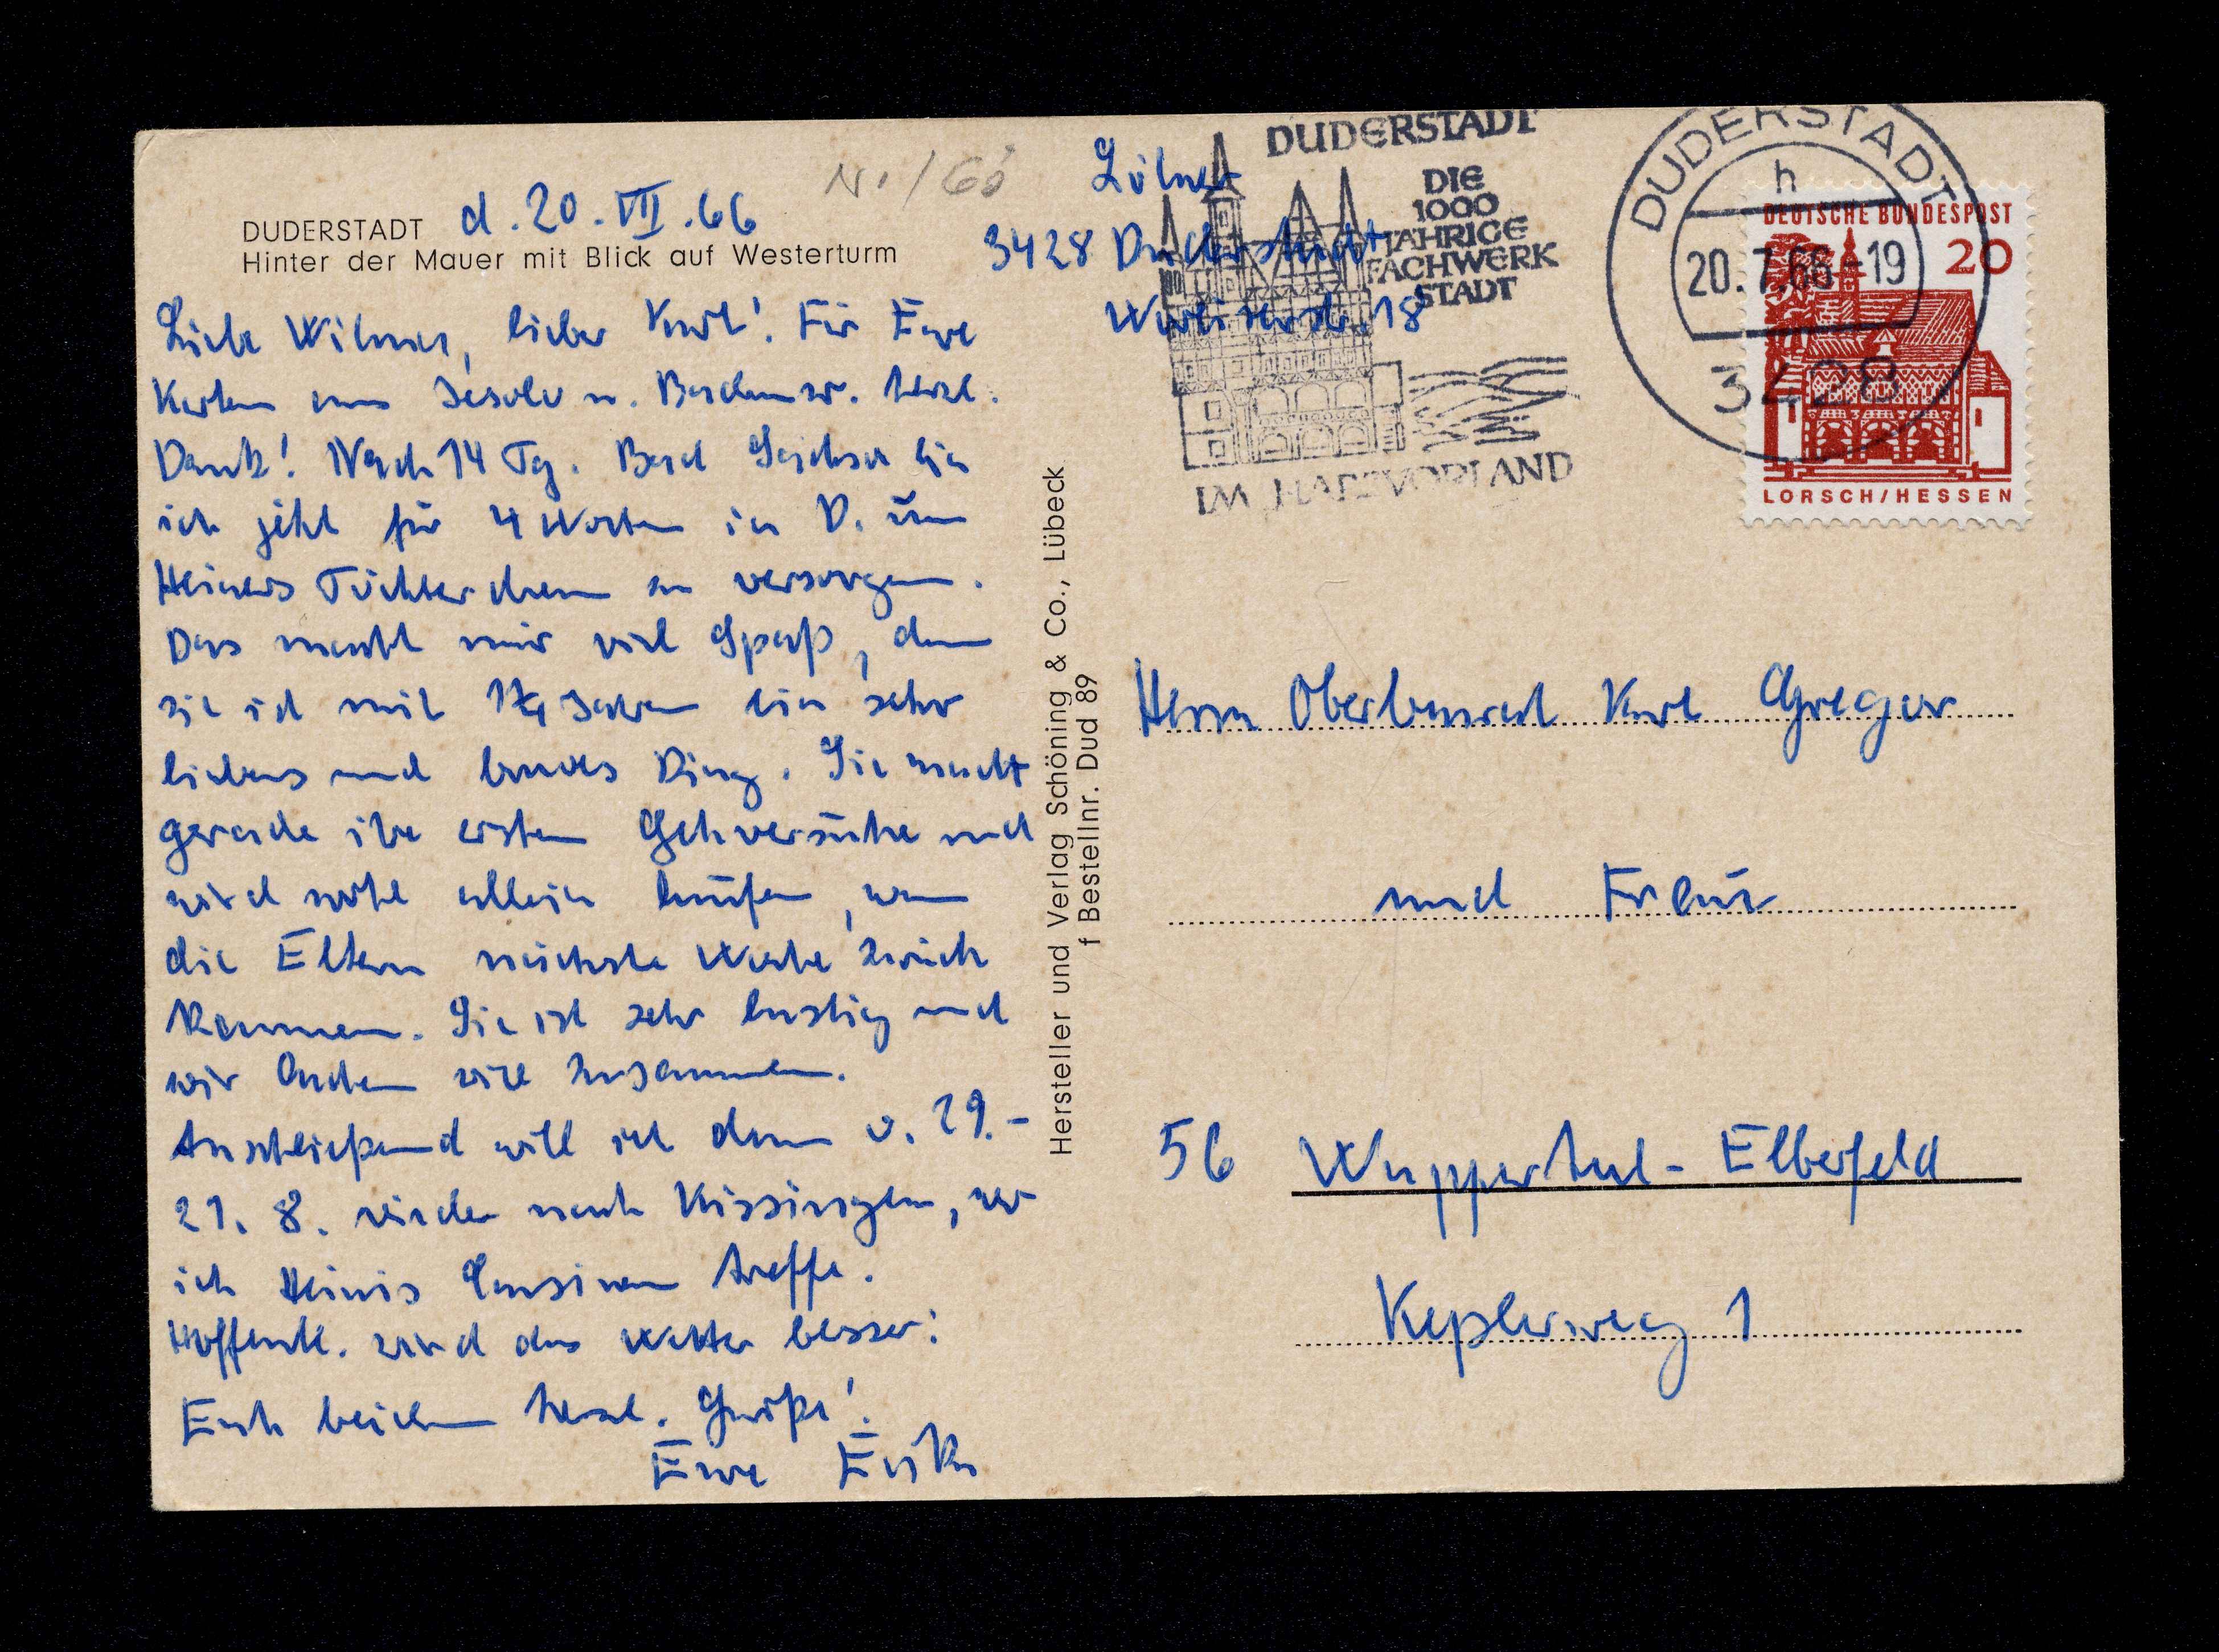 DUDERSTADT d. 20. VII. 66
Hinter der Mauer mit Blick auf Westerturm
Liebe Wilma, lieber Kurt! Für Eure
Karten aus Jesolo u. herzl.
Dank! Nach 14 Tg. Bad Sachsa bin
ich jetzt für 4 Wochen in D. um
Heiners Töchterchen zu versorgen.
Das macht mir viel Spaß, denn
sie ist mit 1¼ Jahren ein sehr
liebes und braves Ding. Sie macht
gerade ihre ersten Gehversuche und
wird wohl allein laufen, wenn
die Eltern nächste Woche zurück
kommen. Sie ist sehr lustig und
wir lachen viel zusammen.
Anschließend will ich dann v. 29.-
21. 8. wieder nach Kissingen, wo
ich Heinis Cousinen treffe.
Hoffentl. wird das Wetter besser!
Euch beiden herzl. Grüße!
Eure
N. /66
3428 Duderstadt
18
DUDERSTADT
DIE
1000
JÄHRIGE
FACHWERK
STADT
IM HARZVORLAND
DUDERSTADT
h
20.7.66-19
3428
DEUTSCHE BUNDESPOST
20
LORSCH/HESSEN
Hersteller und Verlag Schöning & Co., Lübeck
f Bestellnr. Dud 89
Herrn Oberbaurat Kurt Gregor
und Frau
56 Wuppertal-Elberfeld
Keplerweg 1